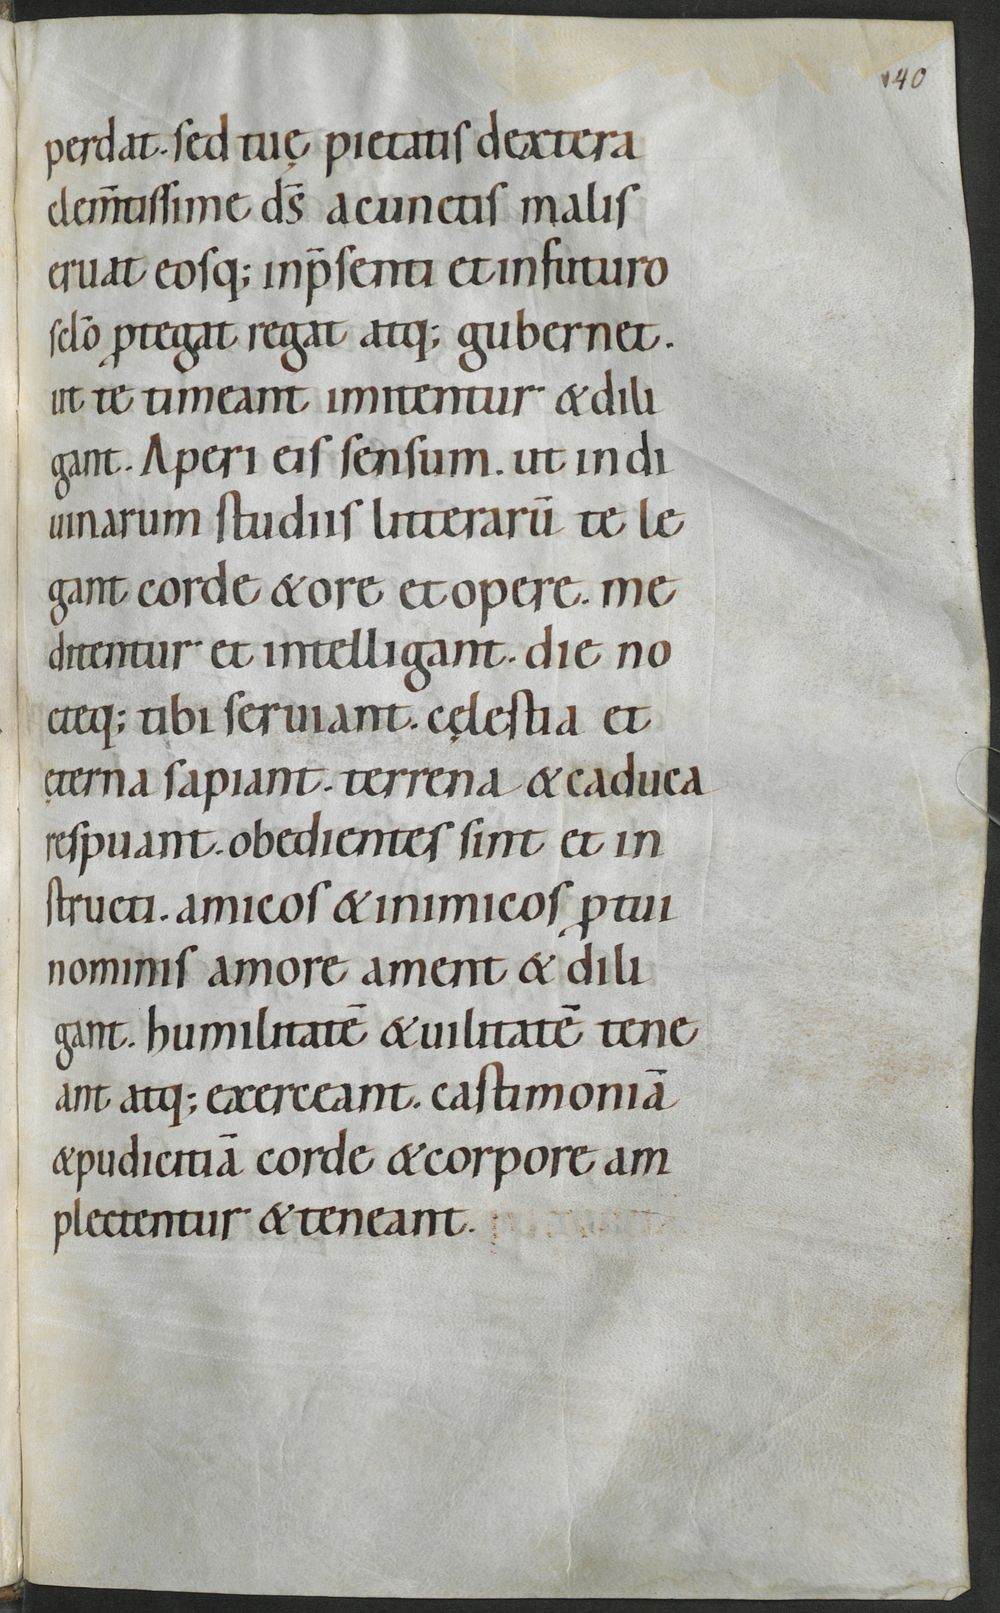 140
perdat. sed tuę pietatis dextera
clem̄tissime ds̄ a cunctis malis
eruat eosq; in p̄senti et in futuro
sclō ꝓtegat regat atq; gubernet.
ut te timeant imitentur & dili
gant. Aperi eis sensum. ut in di
uinarum studiis litterarū te le
gant corde & ore et opere. me
ditentur et intelligant. die no
cteq; tibi seruiant. cęlestia et
ęterna sapiant. terrena & caduca
respuant. obedientes sint et in
structi. amicos & inimicos ꝓ tui
nominis amore ament & dili
gant. humilitatē & uilitatē tene
ant atq; exerceant. castimoniā
& pudicitiā corde & corpore am
plectentur & teneant.